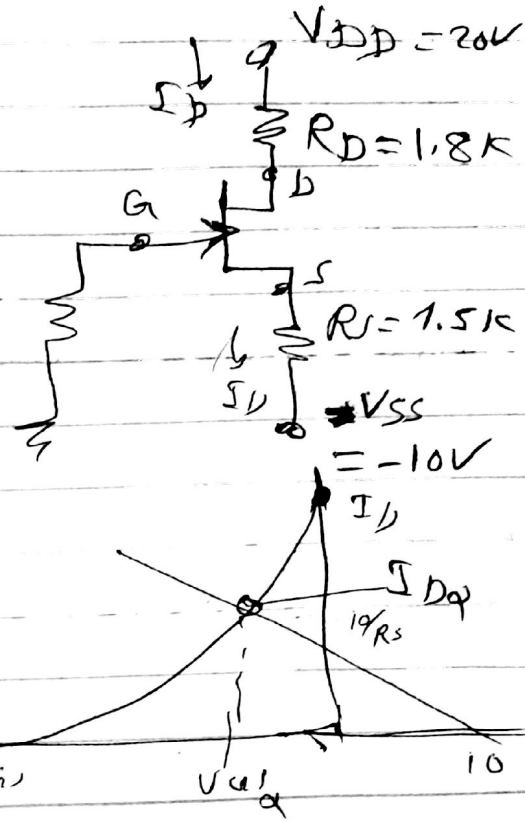 VDD = 20V
ID
RD = 1.8K
D
G
S
RS = 1.5K
ID
VSS
= -10V
ID
IDQ
10/RS
10